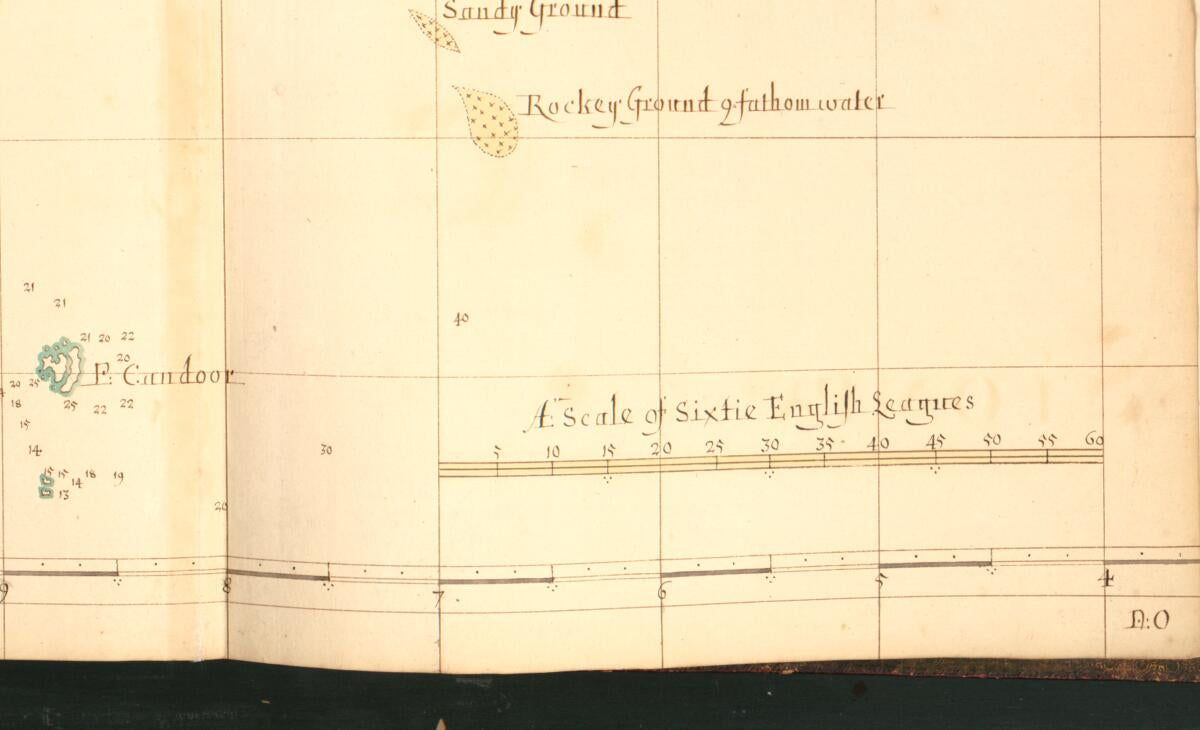 Sandy Ground
Rockey Ground 9 fathom water
21
21
40
21 20 22
20
P: Candoor
20 25
18
25 22 22
15
A Scale of Sixtie English Leagues
5 10 15 20 25 30 35 40 45 50 55 60
14
30
15 15 14 18 19
13
20
9 8 7 6 5 4